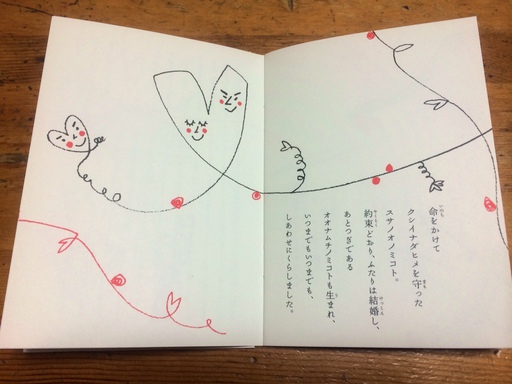 命をかけて
クシイナダヒメを守った
スサノオノミコト。
約束どおり、ふたりは結婚し、
あとつぎである
オオナムチノミコトも生まれ、
いつまでもいつまでも、
しあわせにくらしました。